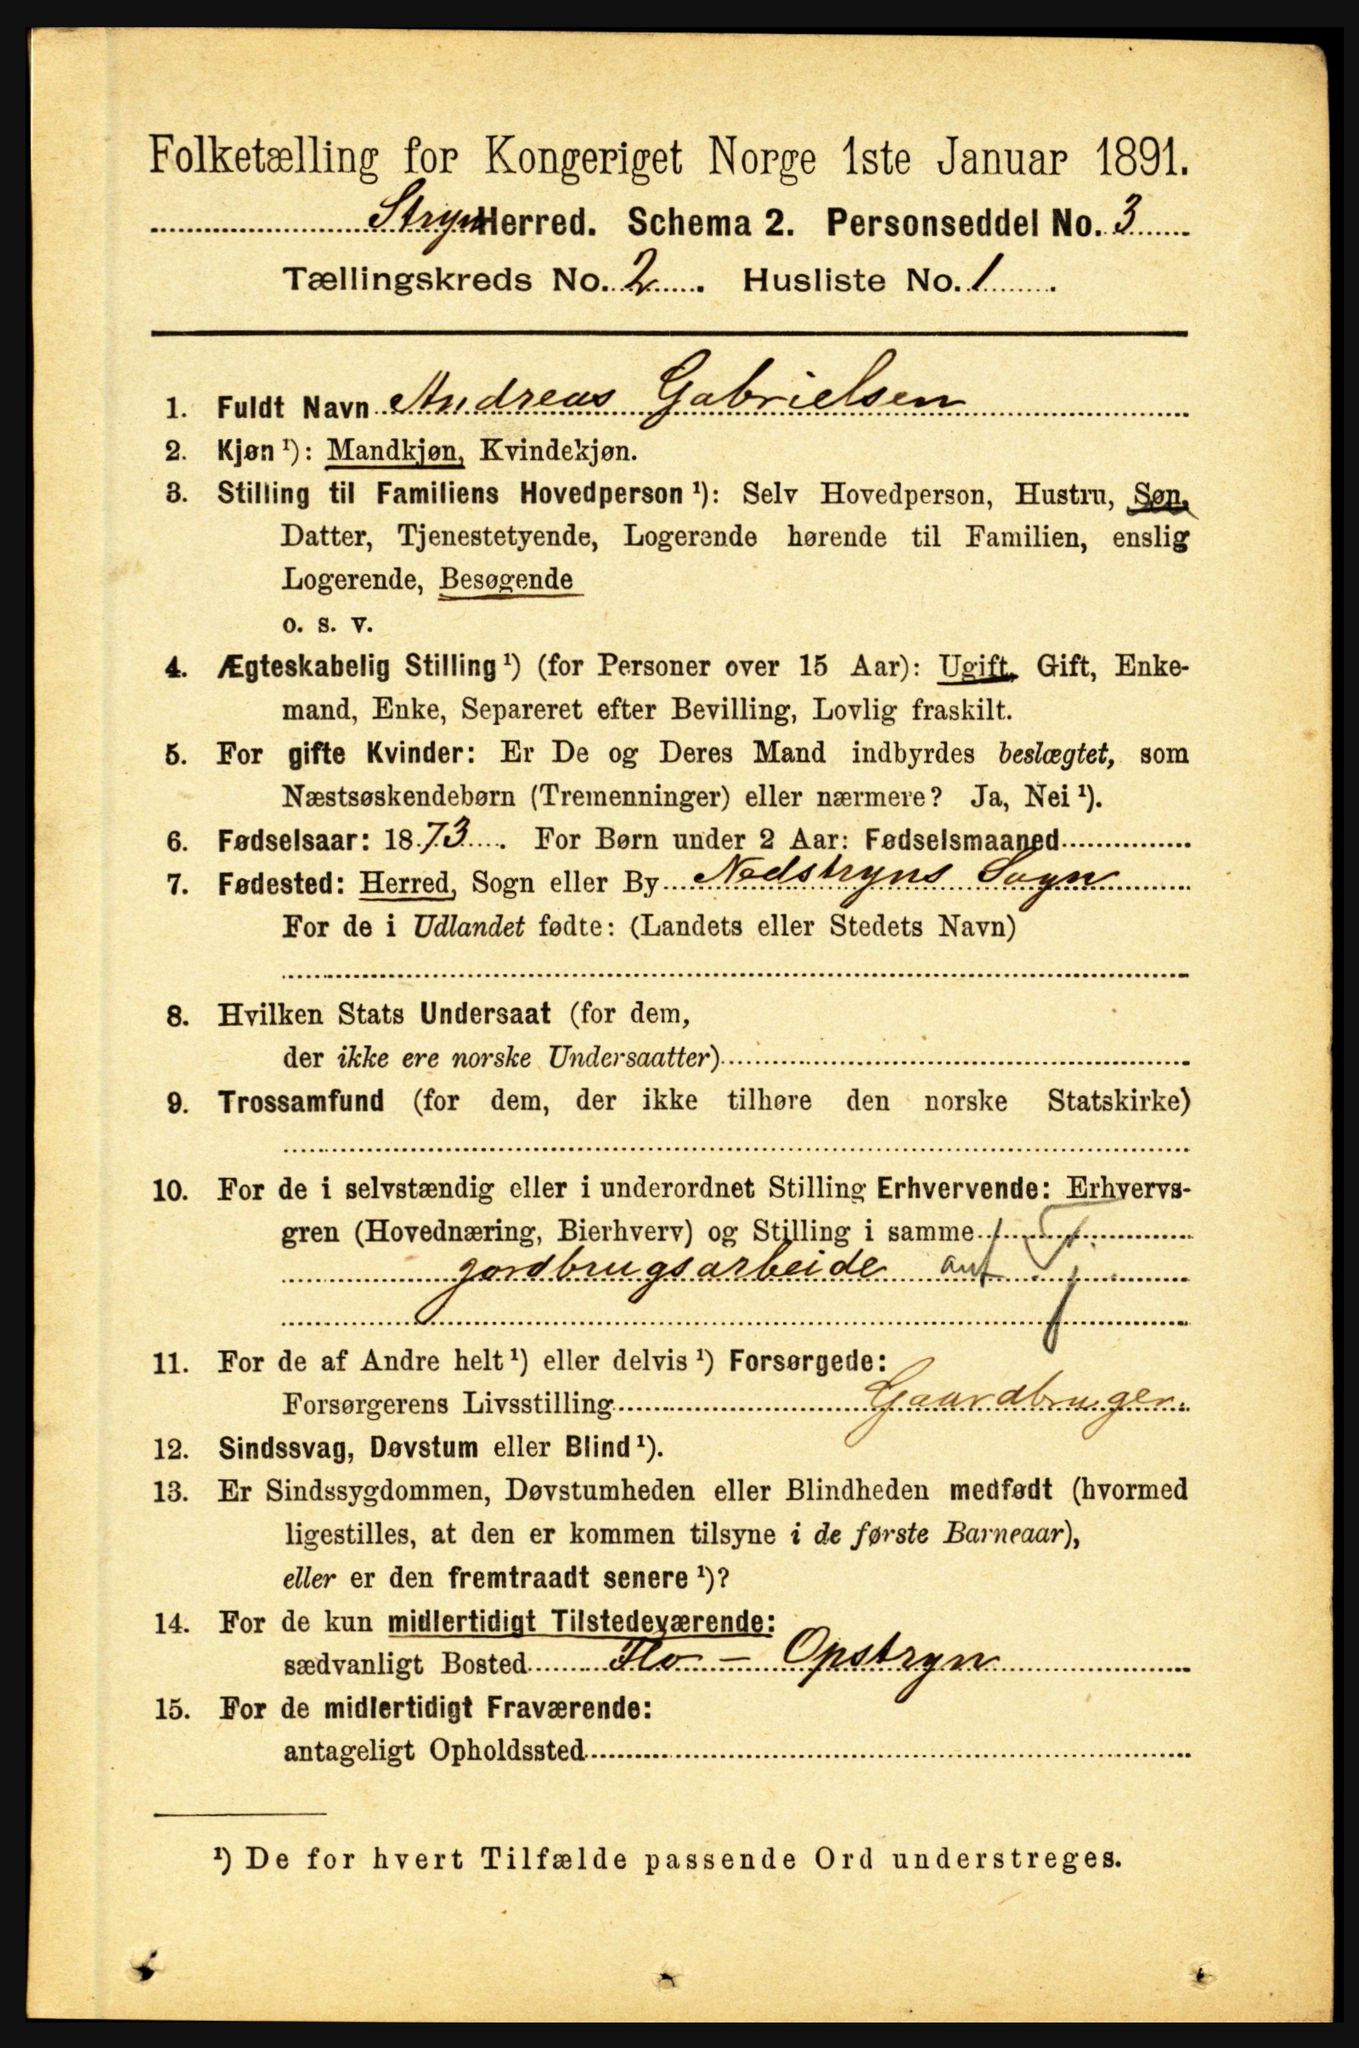 Folketælling for Kongeriget Norge 1ste Januar 1891.
Stryn Herred. Schema 2. Personseddel No. 3
Tællingskreds No. 2. Husliste No. 1.
1. Fuldt Navn Andreas Gabrielsen
2. Kjøn ¹): Mandkjøn, Kvindekjøn.
3. Stilling til Familiens Hovedperson ¹): Selv Hovedperson, Hustru, Søn,
Datter, Tjenestetyende, Logerende hørende til Familien, enslig
Logerende, Besøgende
o. s. v.
4. Ægteskabelig Stilling ¹) (for Personer over 15 Aar): Ugift, Gift, Enke-
mand, Enke, Separeret efter Bevilling, Lovlig fraskilt.
5. For gifte Kvinder: Er De og Deres Mand indbyrdes beslægtet, som
Næstsøskendebørn (Tremenninger) eller nærmere? Ja, Nei ¹).
6. Fødselsaar: 1873. For Børn under 2 Aar: Fødselsmaaned
7. Fødested: Herred, Sogn eller By Nedstryns Sogn
For de i Udlandet fødte: (Landets eller Stedets Navn)
8. Hvilken Stats Undersaat (for dem,
der ikke ere norske Undersaatter)
9. Trossamfund (for dem, der ikke tilhøre den norske Statskirke)
10. For de i selvstændig eller i underordnet Stilling Erhvervende: Erhvervs-
gren (Hovednæring, Bierhverv) og Stilling i samme
gardbrugsarbeide ant
11. For de af Andre helt ¹) eller delvis ¹) Forsørgede:
Forsørgerens Livsstilling Gaardbruger.
12. Sindssvag, Døvstum eller Blind ¹).
13. Er Sindssygdommen, Døvstumheden eller Blindheden medfødt (hvormed
ligestilles, at den er kommen tilsyne i de første Barneaar),
eller er den fremtraadt senere ¹)?
14. For de kun midlertidigt Tilstedeværende:
sædvanligt Bosted Flo - Opstryn
15. For de midlertidigt Fraværende:
antageligt Opholdssted
¹) De for hvert Tilfælde passende Ord understreges.